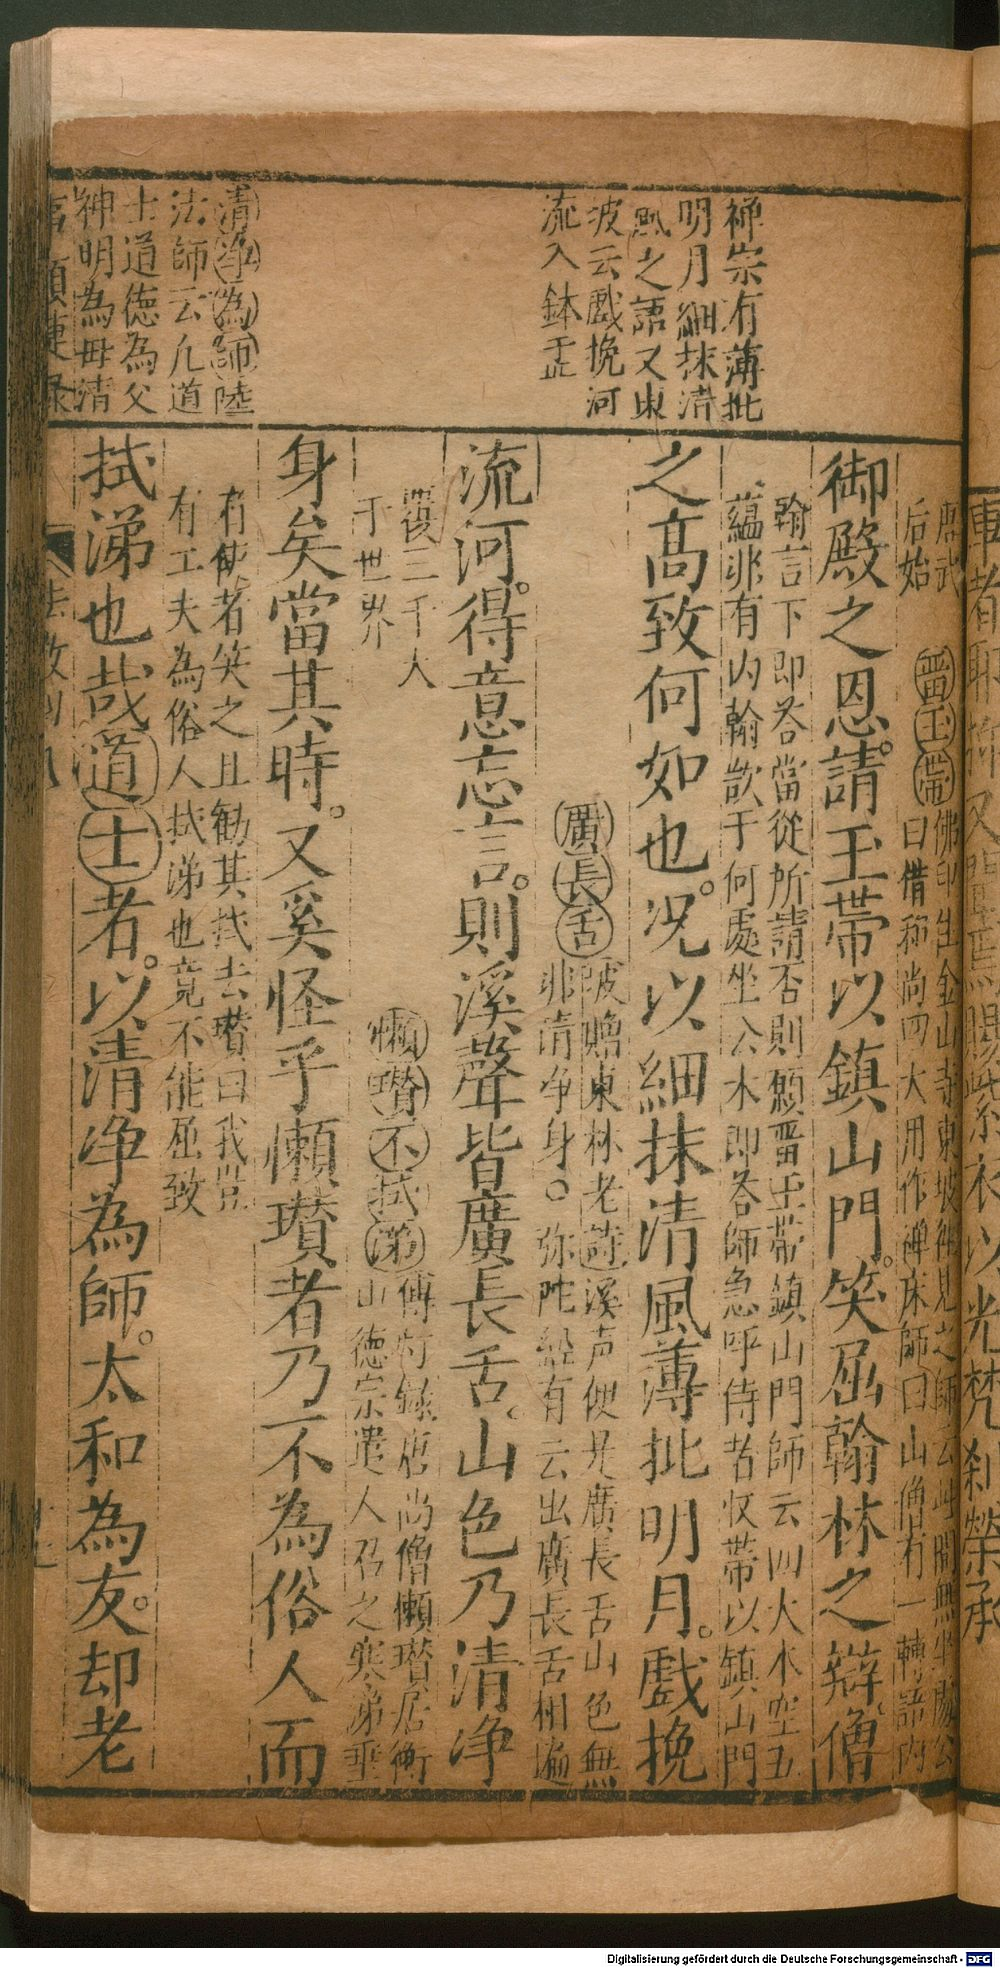 禅宗有薄批
明月細抹清
風之語又東
坡云戲挽河
流入鉢盂
清净為師陸
法師云凡道
士道德為父
神明為毋清
唐武
后始
畱玉帶佛印住金山寺東坡裨見之師云此間無坐處公
曰借和尚四大用作禅床師曰山僧有一轉語内
御殿之恩請玉帶以鎮山門笑屈翰林之辯僧
翰言下即荅當從所請否則願畱玉帶鎮山門師云四大本空五
蘊非有内翰欲于何處坐公未即荅師急呼侍者收帶以鎮山門
之高致何如也况以細抹清風薄批明月戲挽
廣長舌坡贈東林老詩溪声便是廣長舌山色無
非清净身。弥陀經有云出廣長舌相遍
流河得意忘言則溪聲皆廣長舌山色乃清净
覆三千大
千世界
懶瓉不拭涕傳灯錄唐尚僧懶瓉居衡
山德宗遣人召之寒涕垂
身矣當其時又奚怪乎懶瓉者乃不為俗人而
有使者笑之且勸其拭去瓉曰我豈
有工夫為俗人拭涕也竟不能屈致
拭涕也哉道士者以清净為師太和為友却老
Digitalisierung gefördert durch die Deutsche Forschungsgemeinschaft - DFG